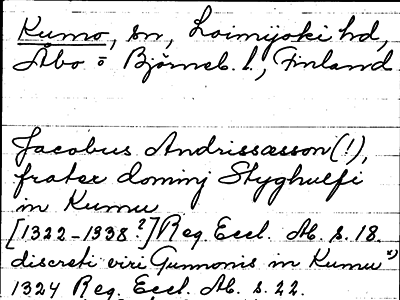 Kumo, sn, Loimijoki hd,
Åbo o Björneb. l., Finland.
Jacobus Andrissæsson (!),
frater dominj Styghulfi
in Kumu
[1322-1338?] Reg. Eccl. Ab. s. 18.
discreti viri Gunnonis in Kumu")
1324 Reg. Eccl. Ab. s. 22.